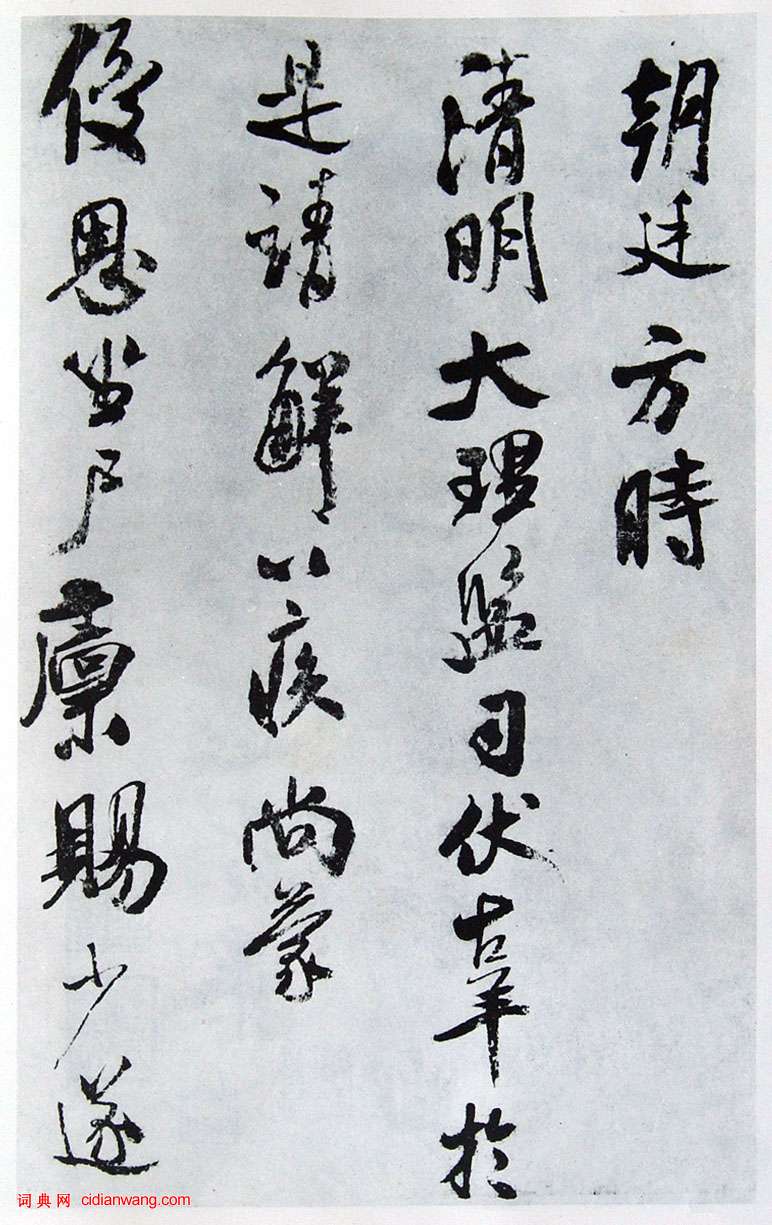 朝廷方時
清明大理監司伏辜於
是請解以疾尚蒙
優恩坐尸廩賜少遂
词典网 cidianwang.com